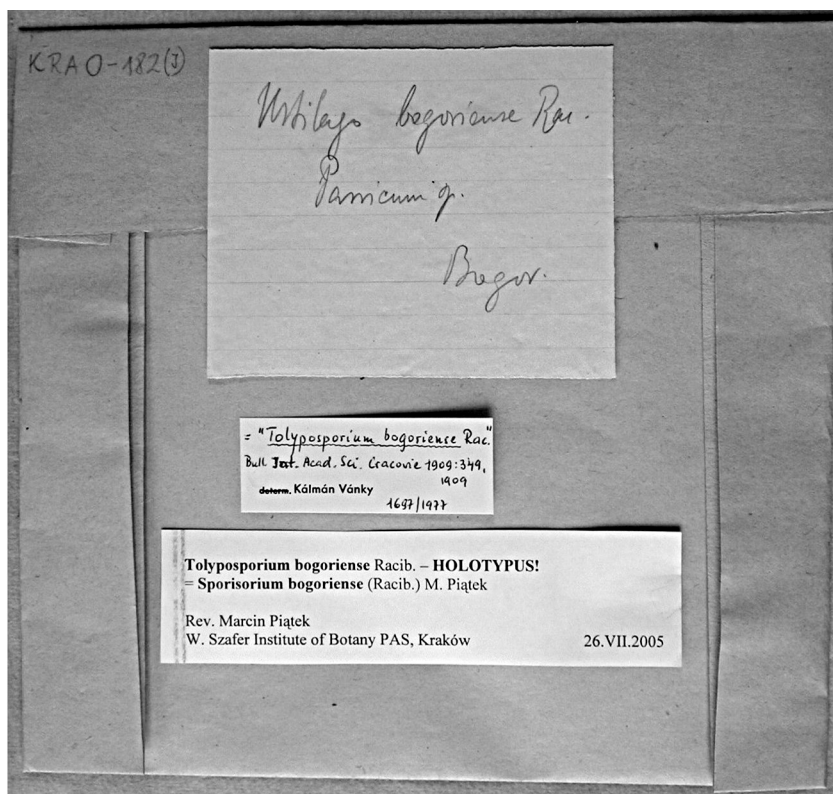 KRA O-182(J)
Ustilago bogoriense Rac.
Panicum sp.
Bogor.
= "Tolyposporium bogoriense Rac."
Bull. Int. Acad. Sci. Cracovie 1909:349,
1909
determ. Kálmán Vánky
1697/1977
Tolyposporium bogoriense Racib. – HOLOTYPUS!
= Sporisorium bogoriense (Racib.) M. Piątek
Rev. Marcin Piątek
W. Szafer Institute of Botany PAS, Kraków 26.VII.2005